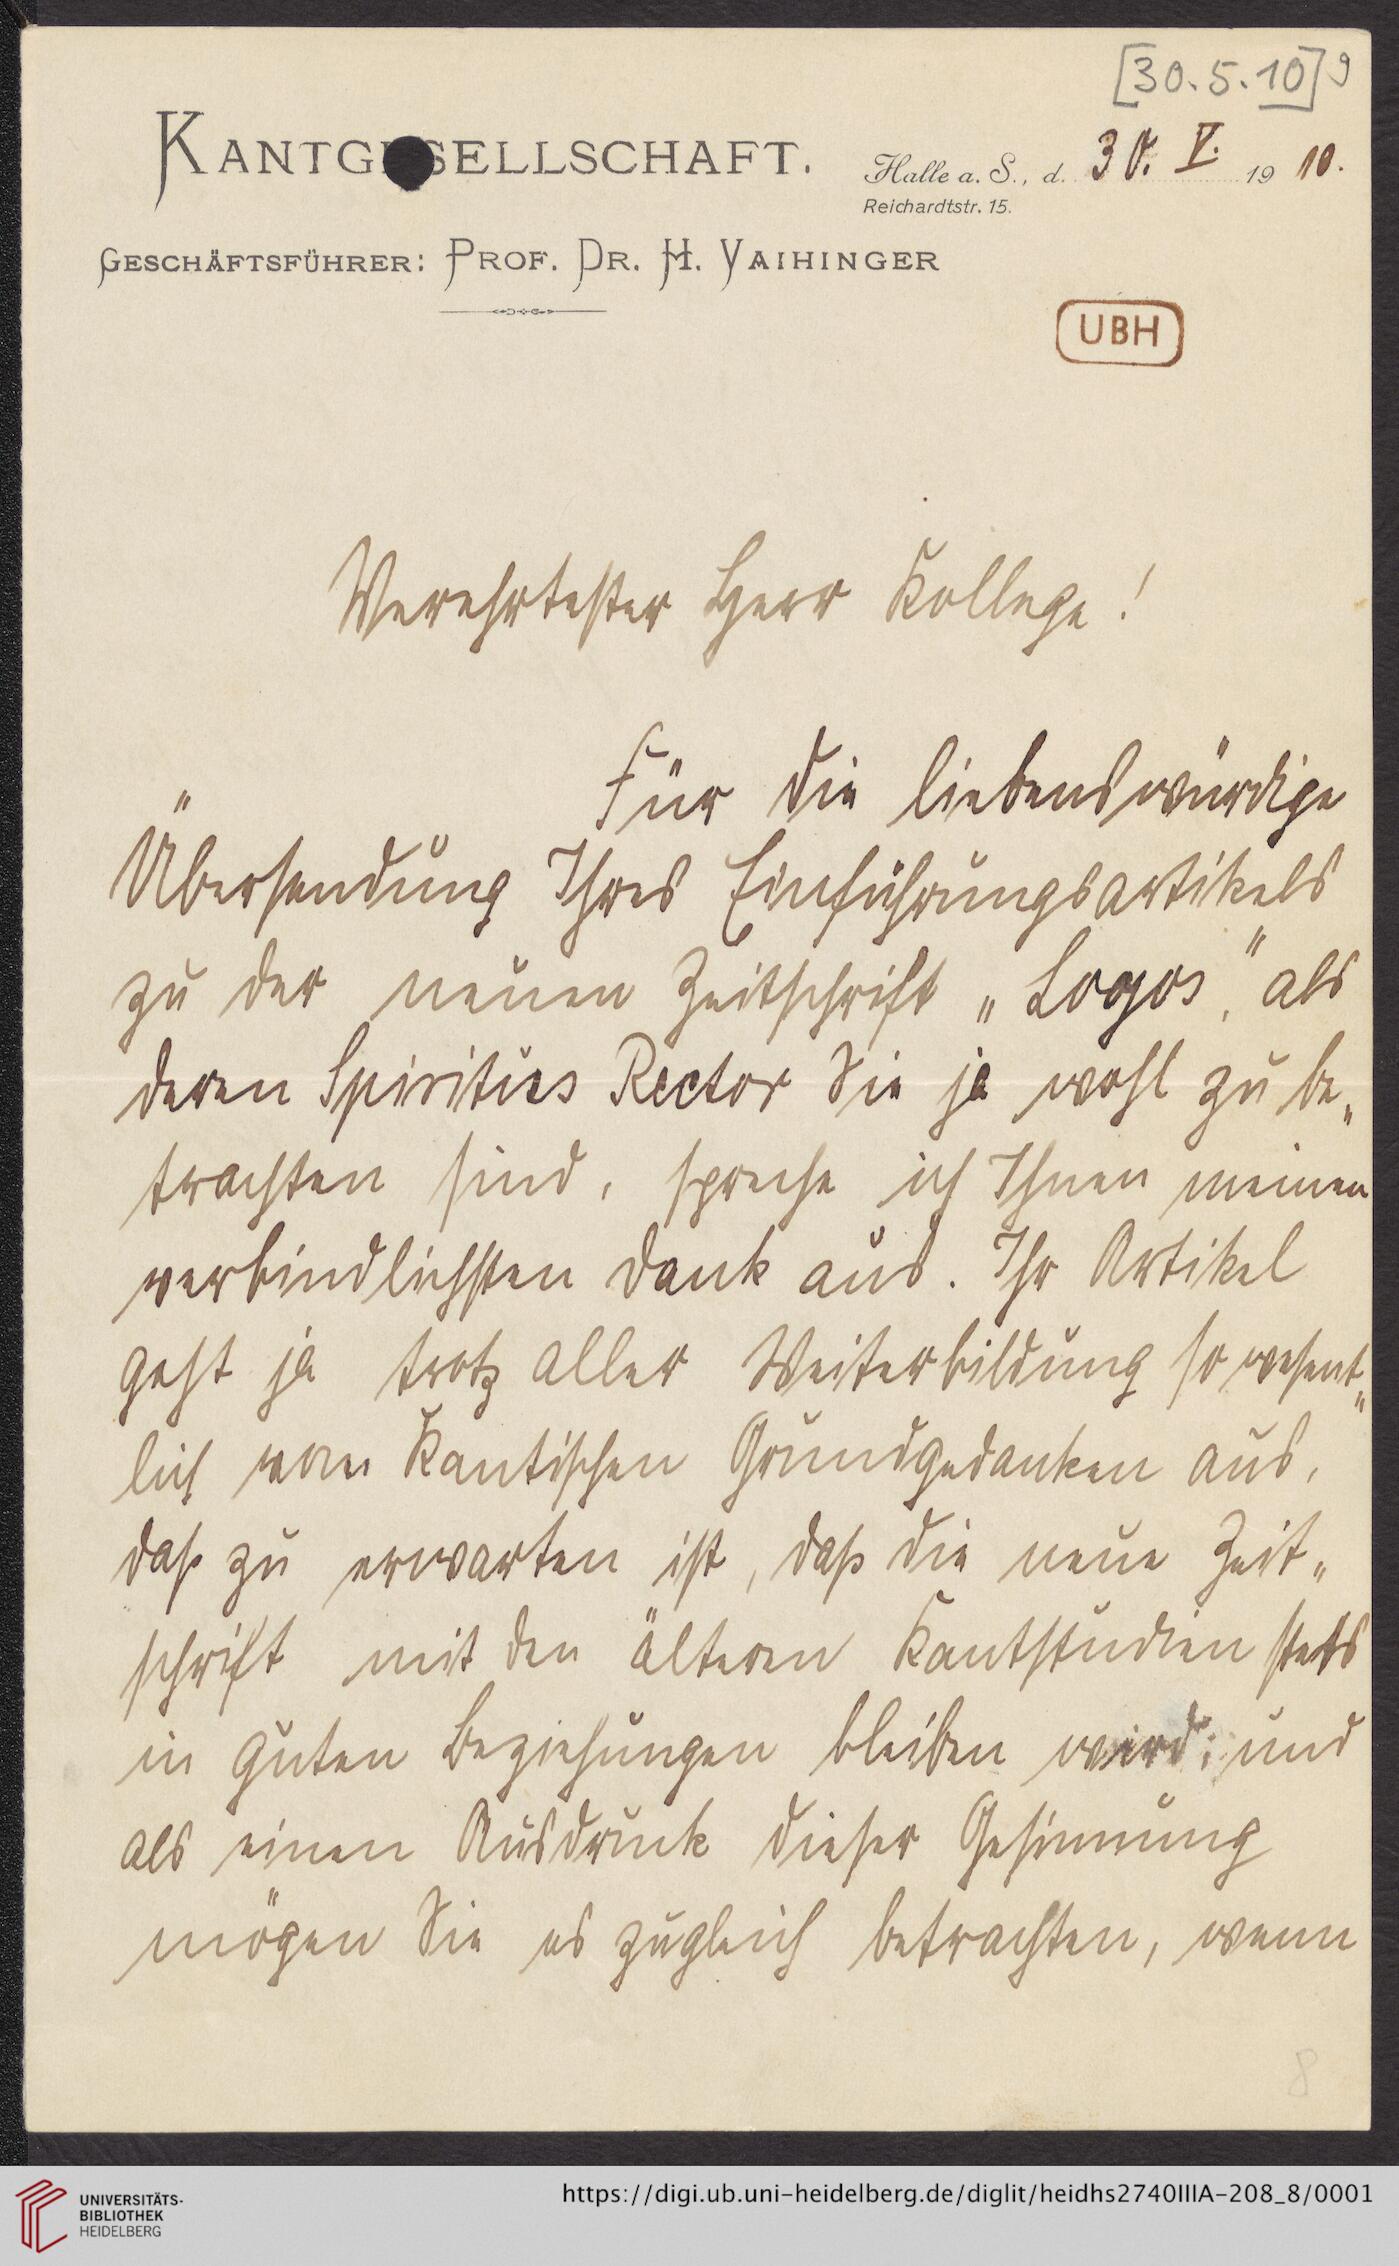 [30.5.10] 9
KANTGESELLSCHAFT.
Halle a. S., d. 30. V. 1910.
Reichardtstr. 15.
GESCHÄFTSFÜHRER: PROF. DR. H. VAIHINGER
UBH
Verehrtester Herr Kollege!
Für die liebenswürdige
Übersendung Ihres Einführungsartikels
zu der neuen Zeitschrift „Logos“, als
deren Spiritus Rector Sie ja wohl zu be„
trachten sind, spreche ich Ihnen meinen
verbindlichsten Dank aus. Ihr Artikel
geht ja trotz aller Weiterbildung so wesent„
lich vom Kantischen Grundgedanken aus,
daß zu erwarten ist, daß die neue Zeit„
schrift mit den älteren Kantstudien stets
in guten Beziehungen bleiben wird; und
als einen Ausdruck dieser Gesinnung
mögen Sie es zugleich betrachten, wenn
8
UNIVERSITÄTS-
BIBLIOTHEK
HEIDELBERG
https://digi.ub.uni-heidelberg.de/diglit/heidhs2740IIIA-208_8/0001